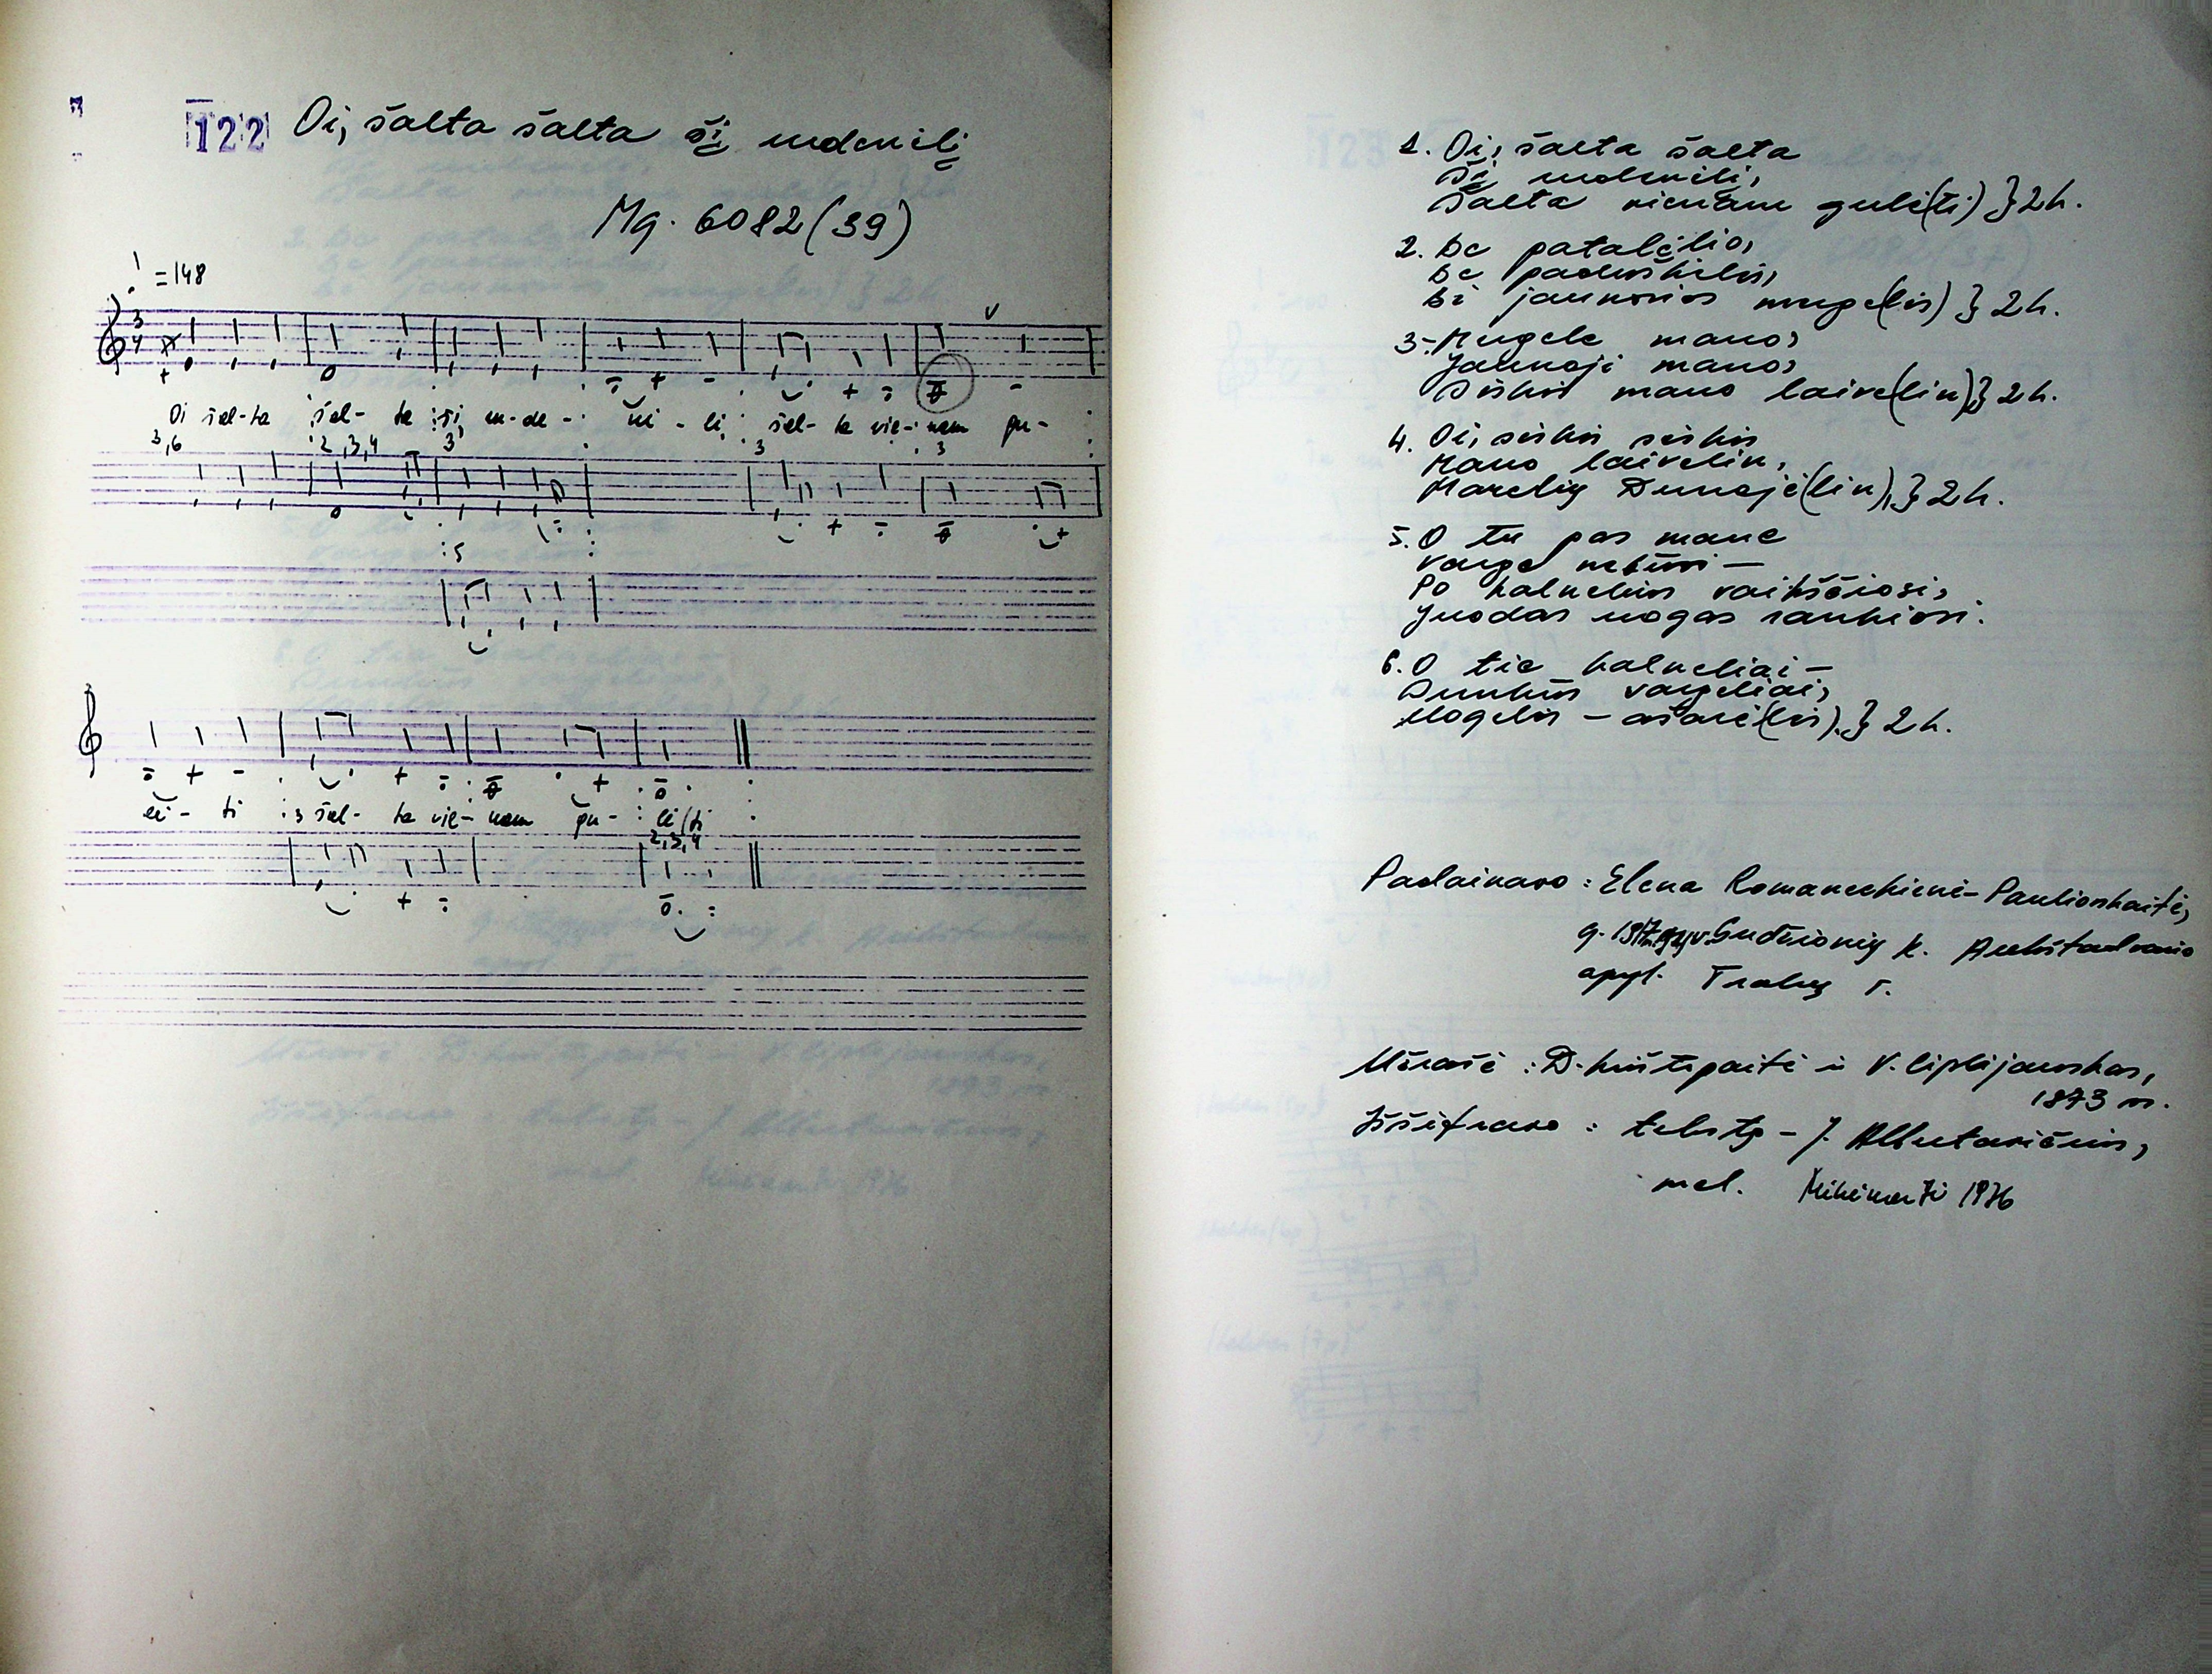 122 Oi, šalta šalta šį rudenilį
Mg. 6082 (39)
= 148
3
4
Oi šal-ta šal- ta šį ru-de- ni - lį, šal- ta vie- nam gu-
3,6 2,3,4 3 3 3
5
lė- ti šal- ta vie- nam gu- lė(ti
2,3,4
1. Oi, šalta šalta
Šį rudenilį,
Šalta vienam gulė(ti) } 2 k.
2. Be patalėlio,
Be paduškėlių,
Be jaunosios merge(lės) } 2 k.
3. Mergele mano,
Jaunoji mano,
Sėskis mano laive(lin) } 2 k.
4. Oi, sėskis sėskis
Mano laivelin,
Marelių Dunojė(lin), } 2 k.
5. O tu pas mane
Vargo nebūsi —
Po kalnelius vaikščiosi,
Juodas uogas rankiosi.
6. O tie kalneliai —
Sunkūs vargeliai,
Uogelės — ašarė(lės). } 2 k.
Padainavo : Elena Romaneckienė - Paulionkaitė,
g. gyv. Gudžionių k. Aukštadvario
apyl. Trakų r.
Užrašė : D. Krištopaitė ir V. Ciplijauskas,
1973 m.
Iššifravo : tekstą - J. Albertavičius,
mel. 1976